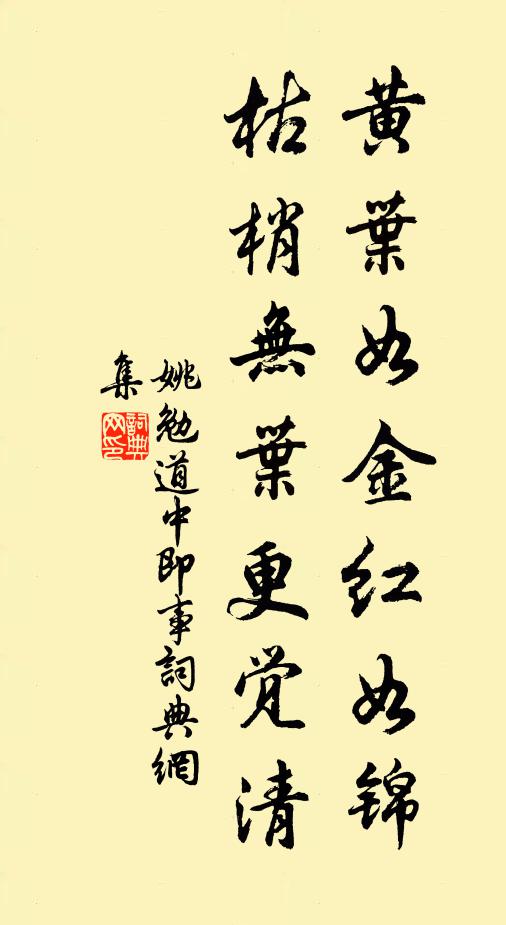 黄葉如金红如锦
枯梢無葉更觉清
姚勉道中即事詞典網
集
詞典网印